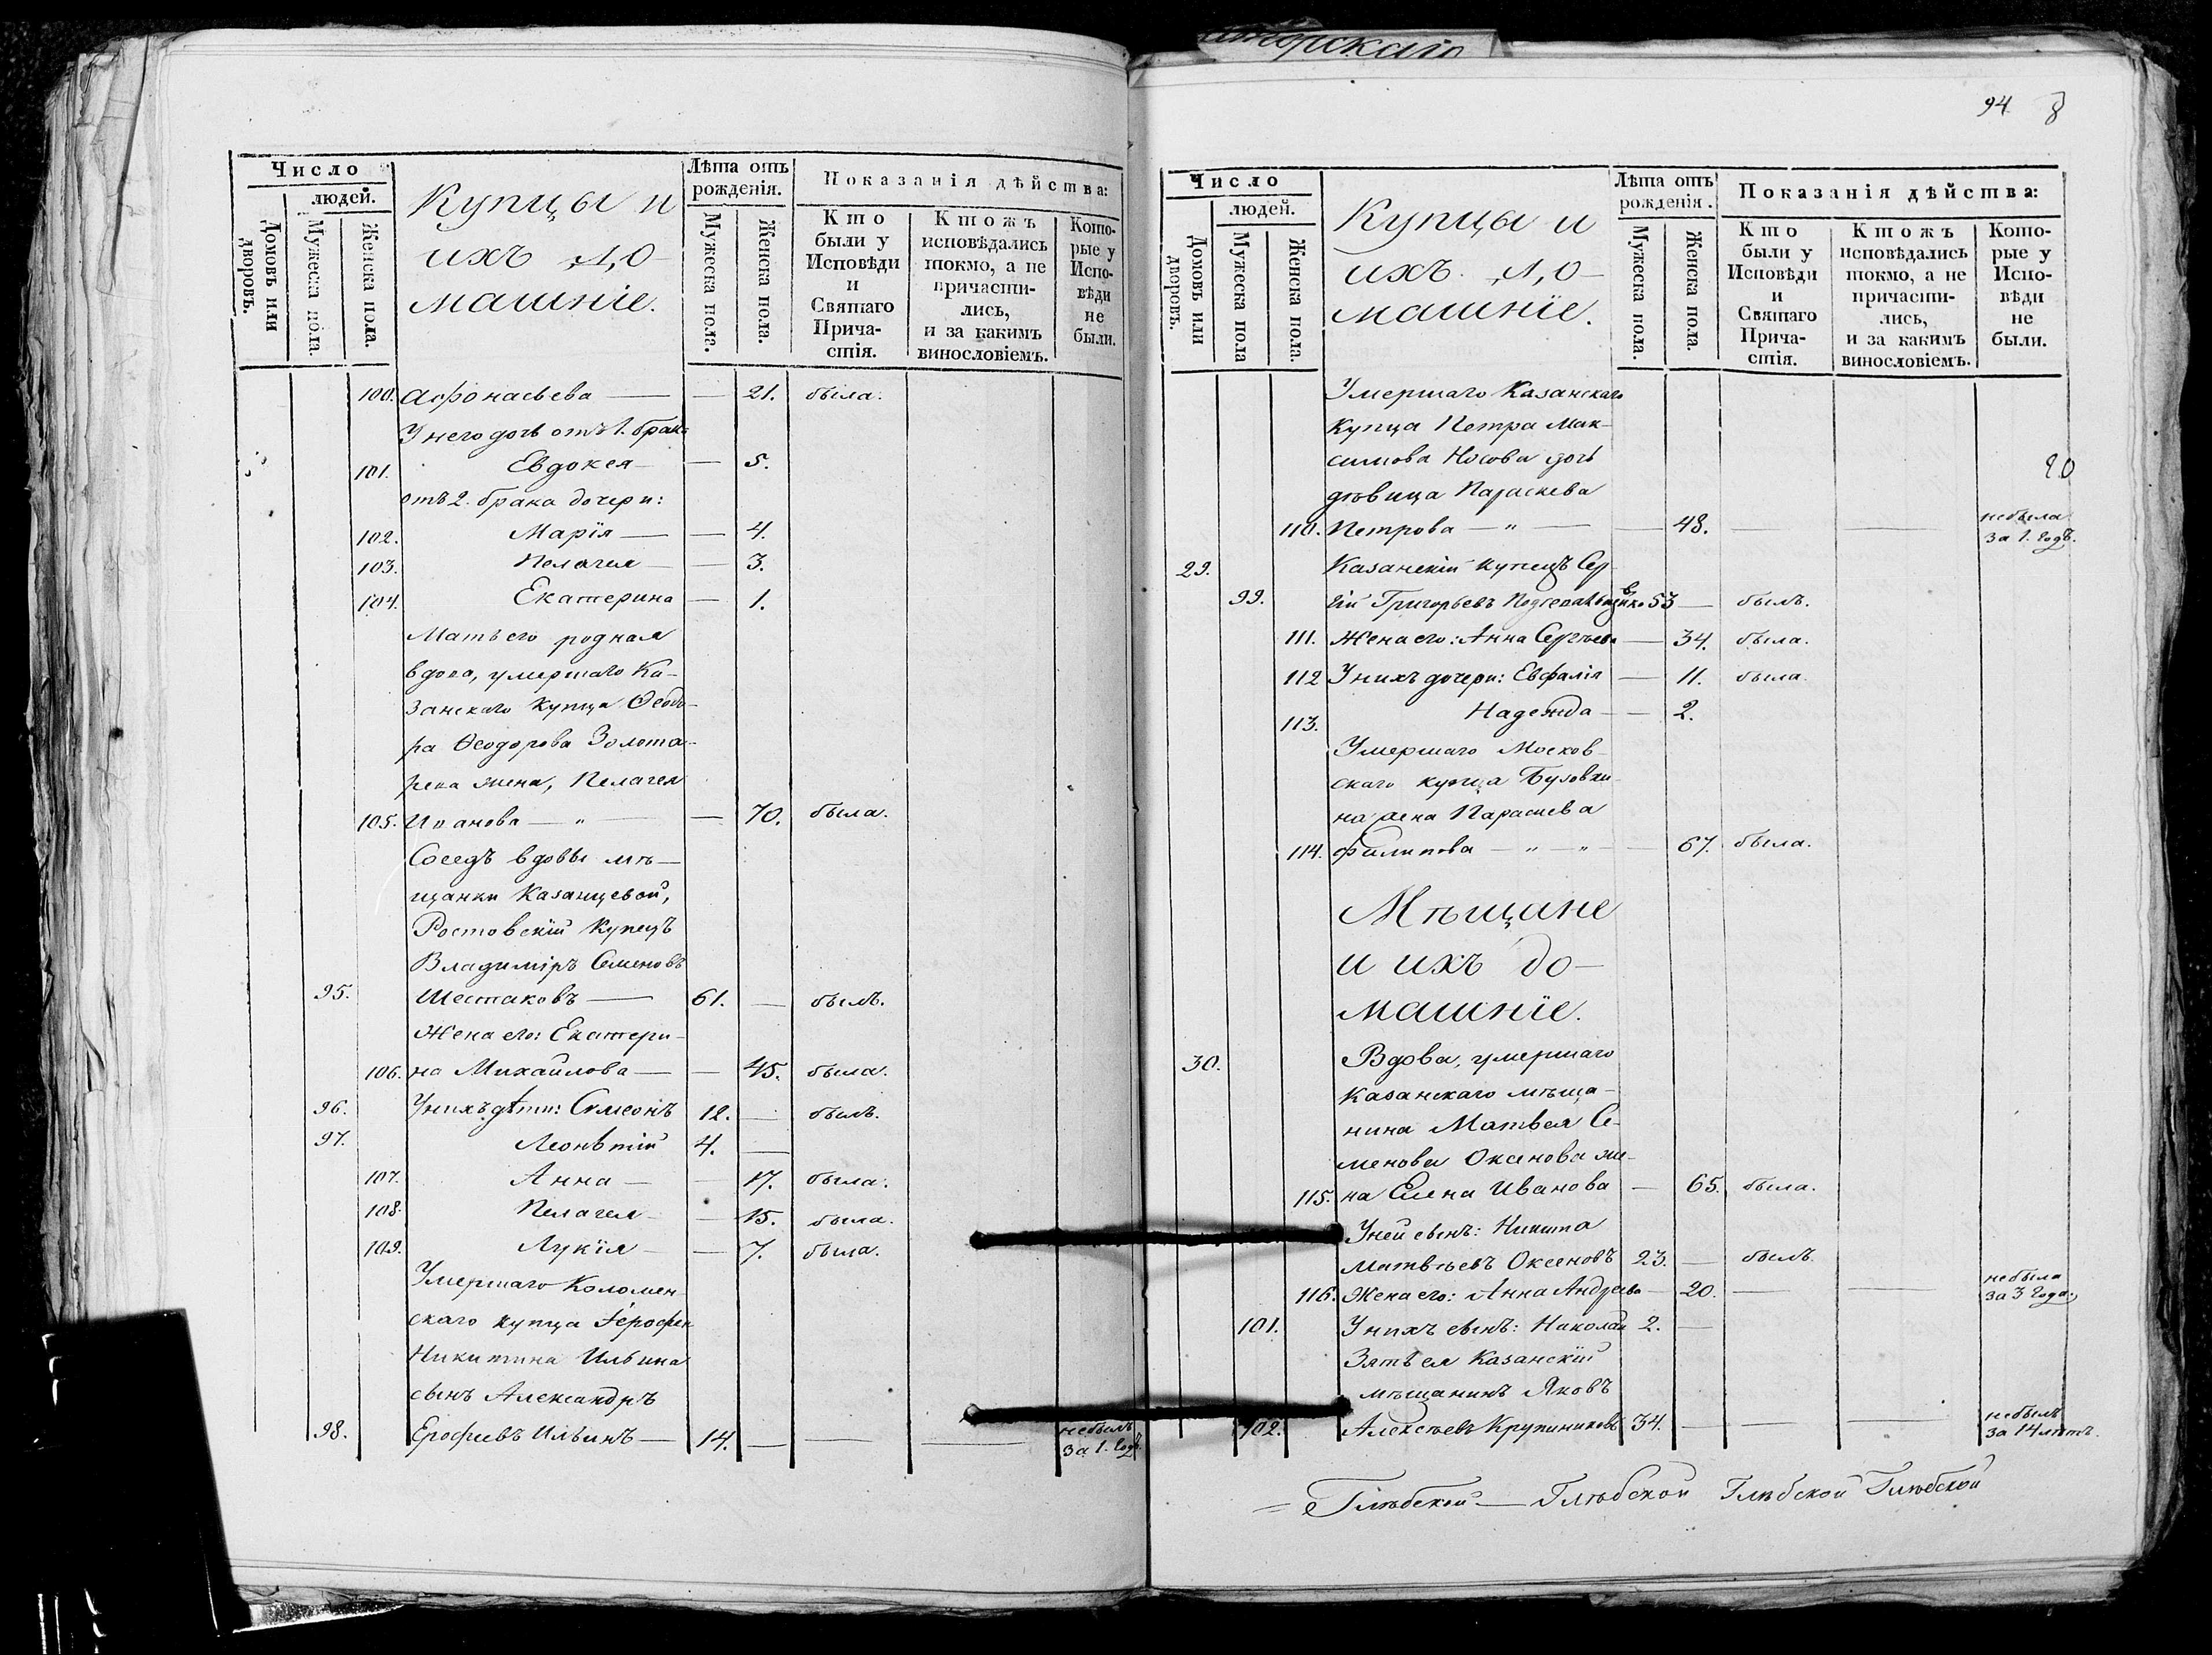 Число
людей.
Домовъ или дворовъ.
Мужеска пола.
Женска пола.
Купцы и
ихъ до-
машніе.
Лѣта отъ рожденія.
Мужеска пола.
Женска пола.
Показанія дѣйства:
Кто были у Исповѣди и Святаго Прича-стія.
Ктожъ исповѣдались токмо, а не причасти-лись, и за какимъ винословіемъ.
Кото-рые у Испо-вѣди не были.
100. Афонасьева — — 21. была.
У него дочь отъ 1. брака
101. Евдокея — — 5.
отъ 2. брака дочери:
102. Марія — — 4.
103. Пелагея — — 3.
104. Екатерина — 1.
Мать его родная
вдова, умершаго Ка-
занскаго купца Ѳеодо-
ра Ѳеодорова Золота-
рева жена, Пелагея
105. Иванова — „ — — 70. была.
Соседъ вдовы мѣ-
щанки Казанцевой,
Ростовскій Купецъ
Владиміръ Семеновъ
95. Шестаковъ — 61. — былъ.
Жена его: Екатери-
106. на Михайлова — — 45. была.
96. У нихъ дѣти: Симеонъ 12. — былъ.
97. Леонтій 4. —
107. Анна — — 17. была.
108. Пелагея — — 15. была.
109. Лукія — — 7. была.
Умершаго Коломен-
скаго купца Іерофея
Никитина Ильина
сынъ Александръ
98. Ерофиевъ Ильинъ — 14. — — — небылъ
за 1. годъ.
94 8
Число
людей.
Домовъ или дворовъ.
Мужеска пола
Женска пола.
Купцы и
ихъ до-
машніе.
Лѣта отъ рожденія.
Мужеска пола.
Женска пола.
Показанія дѣйства:
Кто были у Исповѣди и Святаго Прича-стія.
Ктожъ исповѣдались токмо, а не причасти-лись, и за какимъ винословіемъ.
Кото-рые у Испо-вѣди не были.
Умершаго Казанскаго
Купца Петра Мак-
симова Носова дочь
дѣвица Параскева
110. Петрова — „ — — 48. — — небыла
за 1. годъ.
29. Казанскій купецъ Сер-
99. гій Григорьевъ 53 — былъ.
111. Жена его: Анна Сергѣева — 34. была.
112 У нихъ дочери: Евфалія — 11. была.
113. Надежда — — 2.
Умершаго Москов-
скаго купца
Параскева
114. Филипова — „ — „ — 67. была.
Мѣщане
и ихъ до-
машніе.
30. Вдова, умершаго
Казанскаго мѣща-
нина Матвея Се-
менова Оксенова же-
115. на Елена Иванова — 65. была.
У ней сынъ: Никита
Матвѣевъ Оксеновъ 23. — былъ.
116. Жена его: Анна Андреева — 20. — — небыла
за 3 года.
101. У нихъ сынъ: Николай 2. —
Зять ея Казанскій
мѣщанинъ Яковъ
102. Алексѣевъ Крупениковъ 34. — — — небылъ
за 14 лѣтъ.
= Глѣбской — Глѣбской Глѣбской Глѣбской